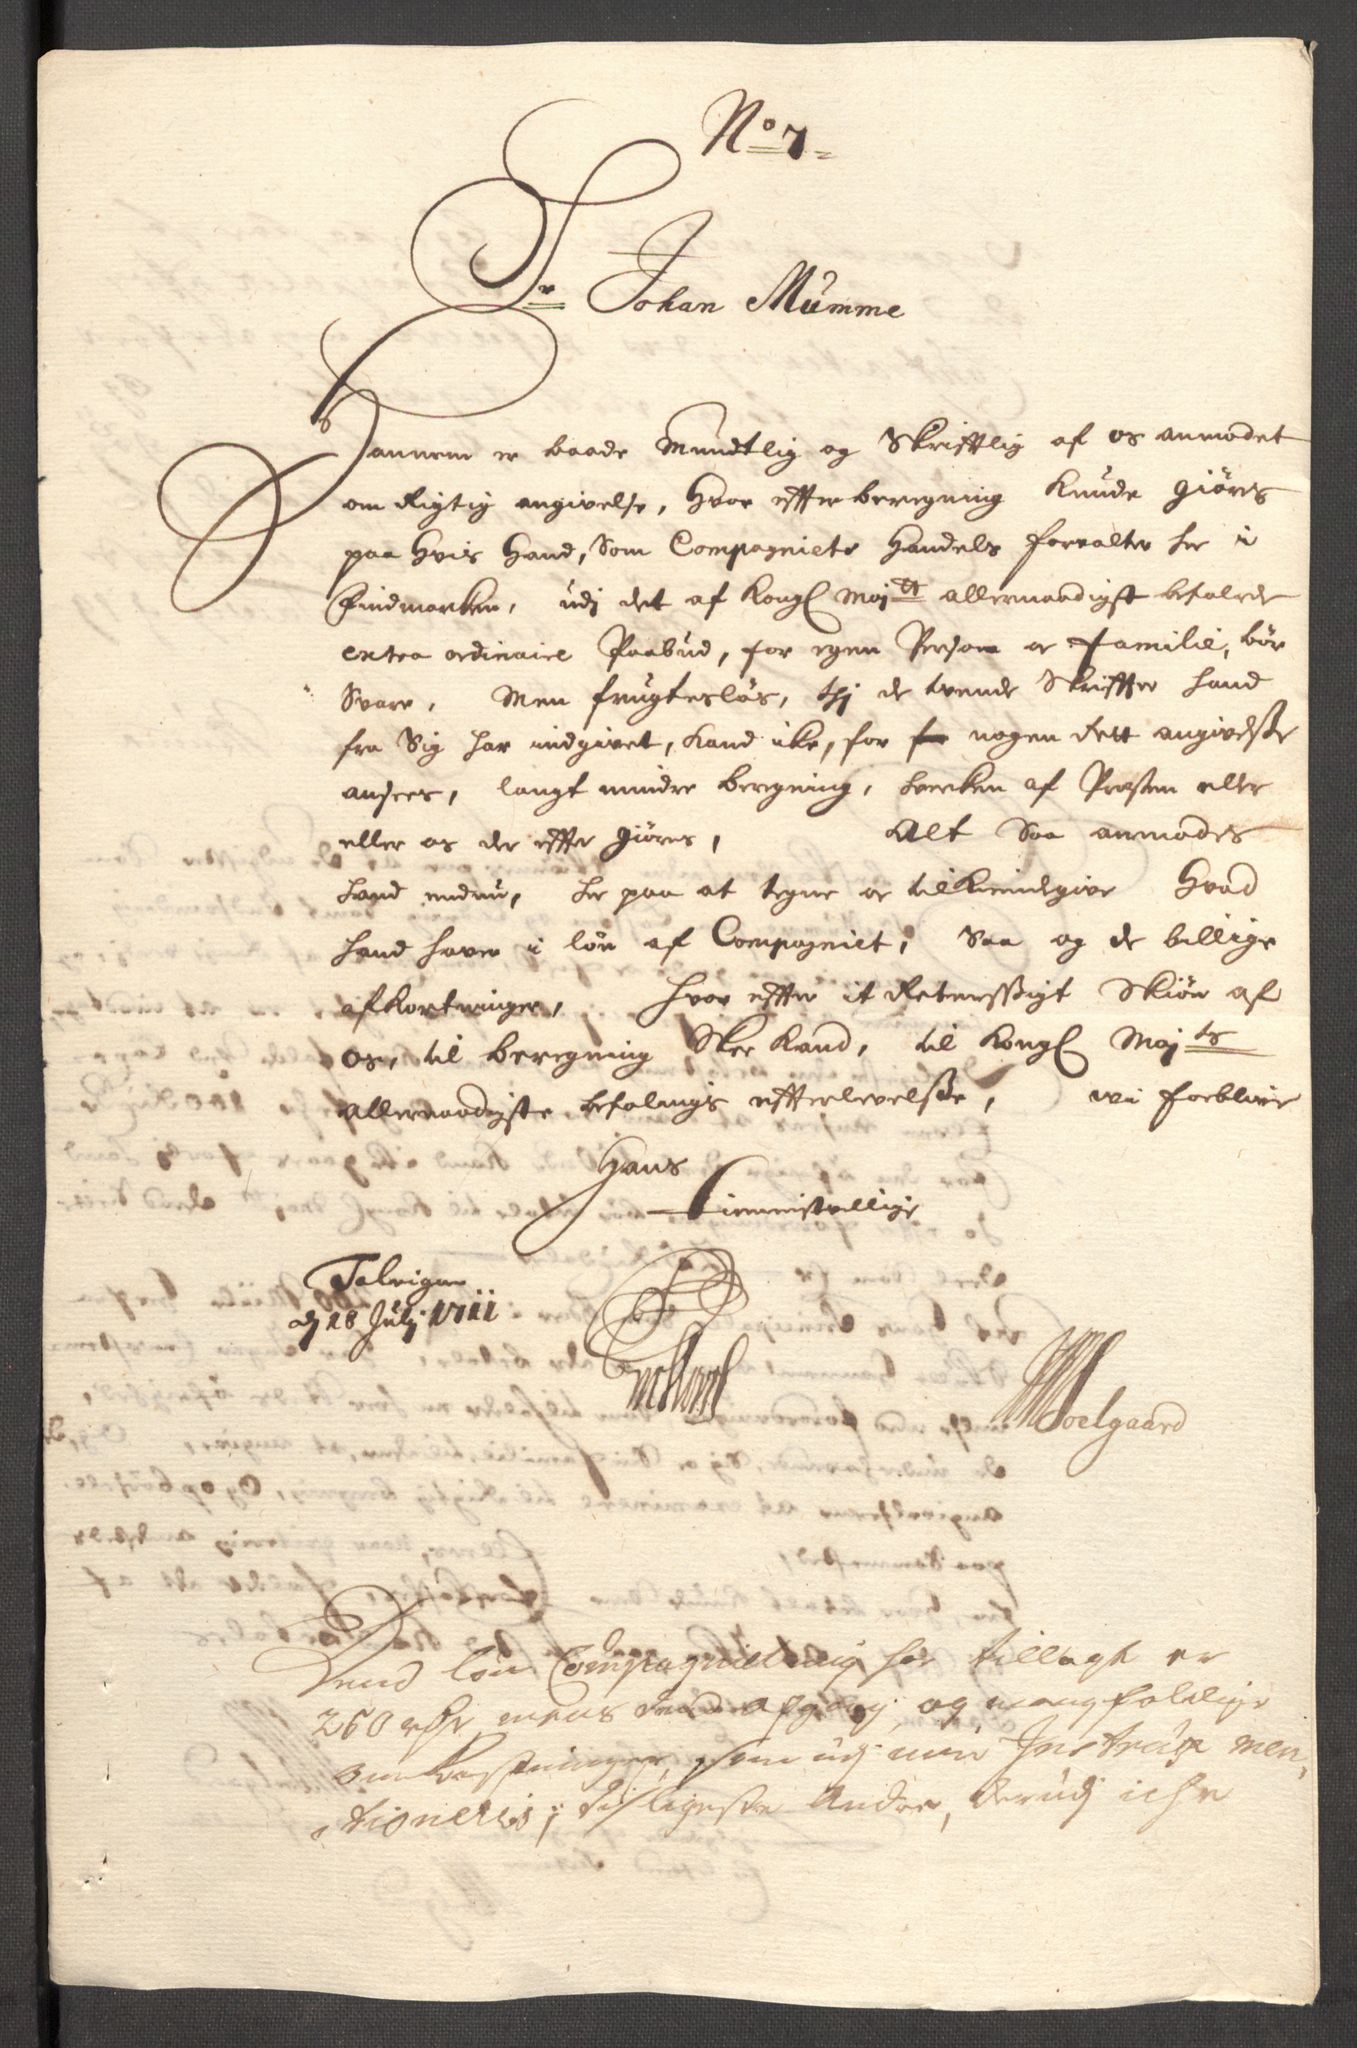 No 7
Sr Johan Mumme
Hannem er baade Mundtlig og Skrifftlig af os anmodet
om Rigtig angivelse, hvor effter beregning Kunde giöres
paa hvis hand, Som Compagniets Handels forvalter her i
Findmarken, udj det af Kongl Majtt allernaadigst befalede
extra ordinaire Paabud, for egen Person oc familie, bör
Svare, Men frugteslös, thj de tvende Skriffter hand
fra Sig har indgivet, kand icke, for nogen Rett angivelsse
ansees, langt mindre beregning, hvercken af Præsten eller
eller os der effter giöres, Alt Saa anmodes
hand endnu, her paa at tegne oc tilkiendegive hvad
hand haver i lön af Compagniet, Saa og de billige
afkortninger, hvor effter it Retmessigt Skiön af
os, til beregning Skee kand, til Kongl Majts
allernaadigste befalings effterlevelsse, vi forblive
Hans
Tienistvillige
Talvigen
dj 18 Julj 1711
Soelgaard
Dend lön Compagniet mig har tillagt er
260 rdr, mens dend afgang og mangfoldige
omkostninger, som udj min Instrux men,
tioneris, disligeste Andre, derudj iche